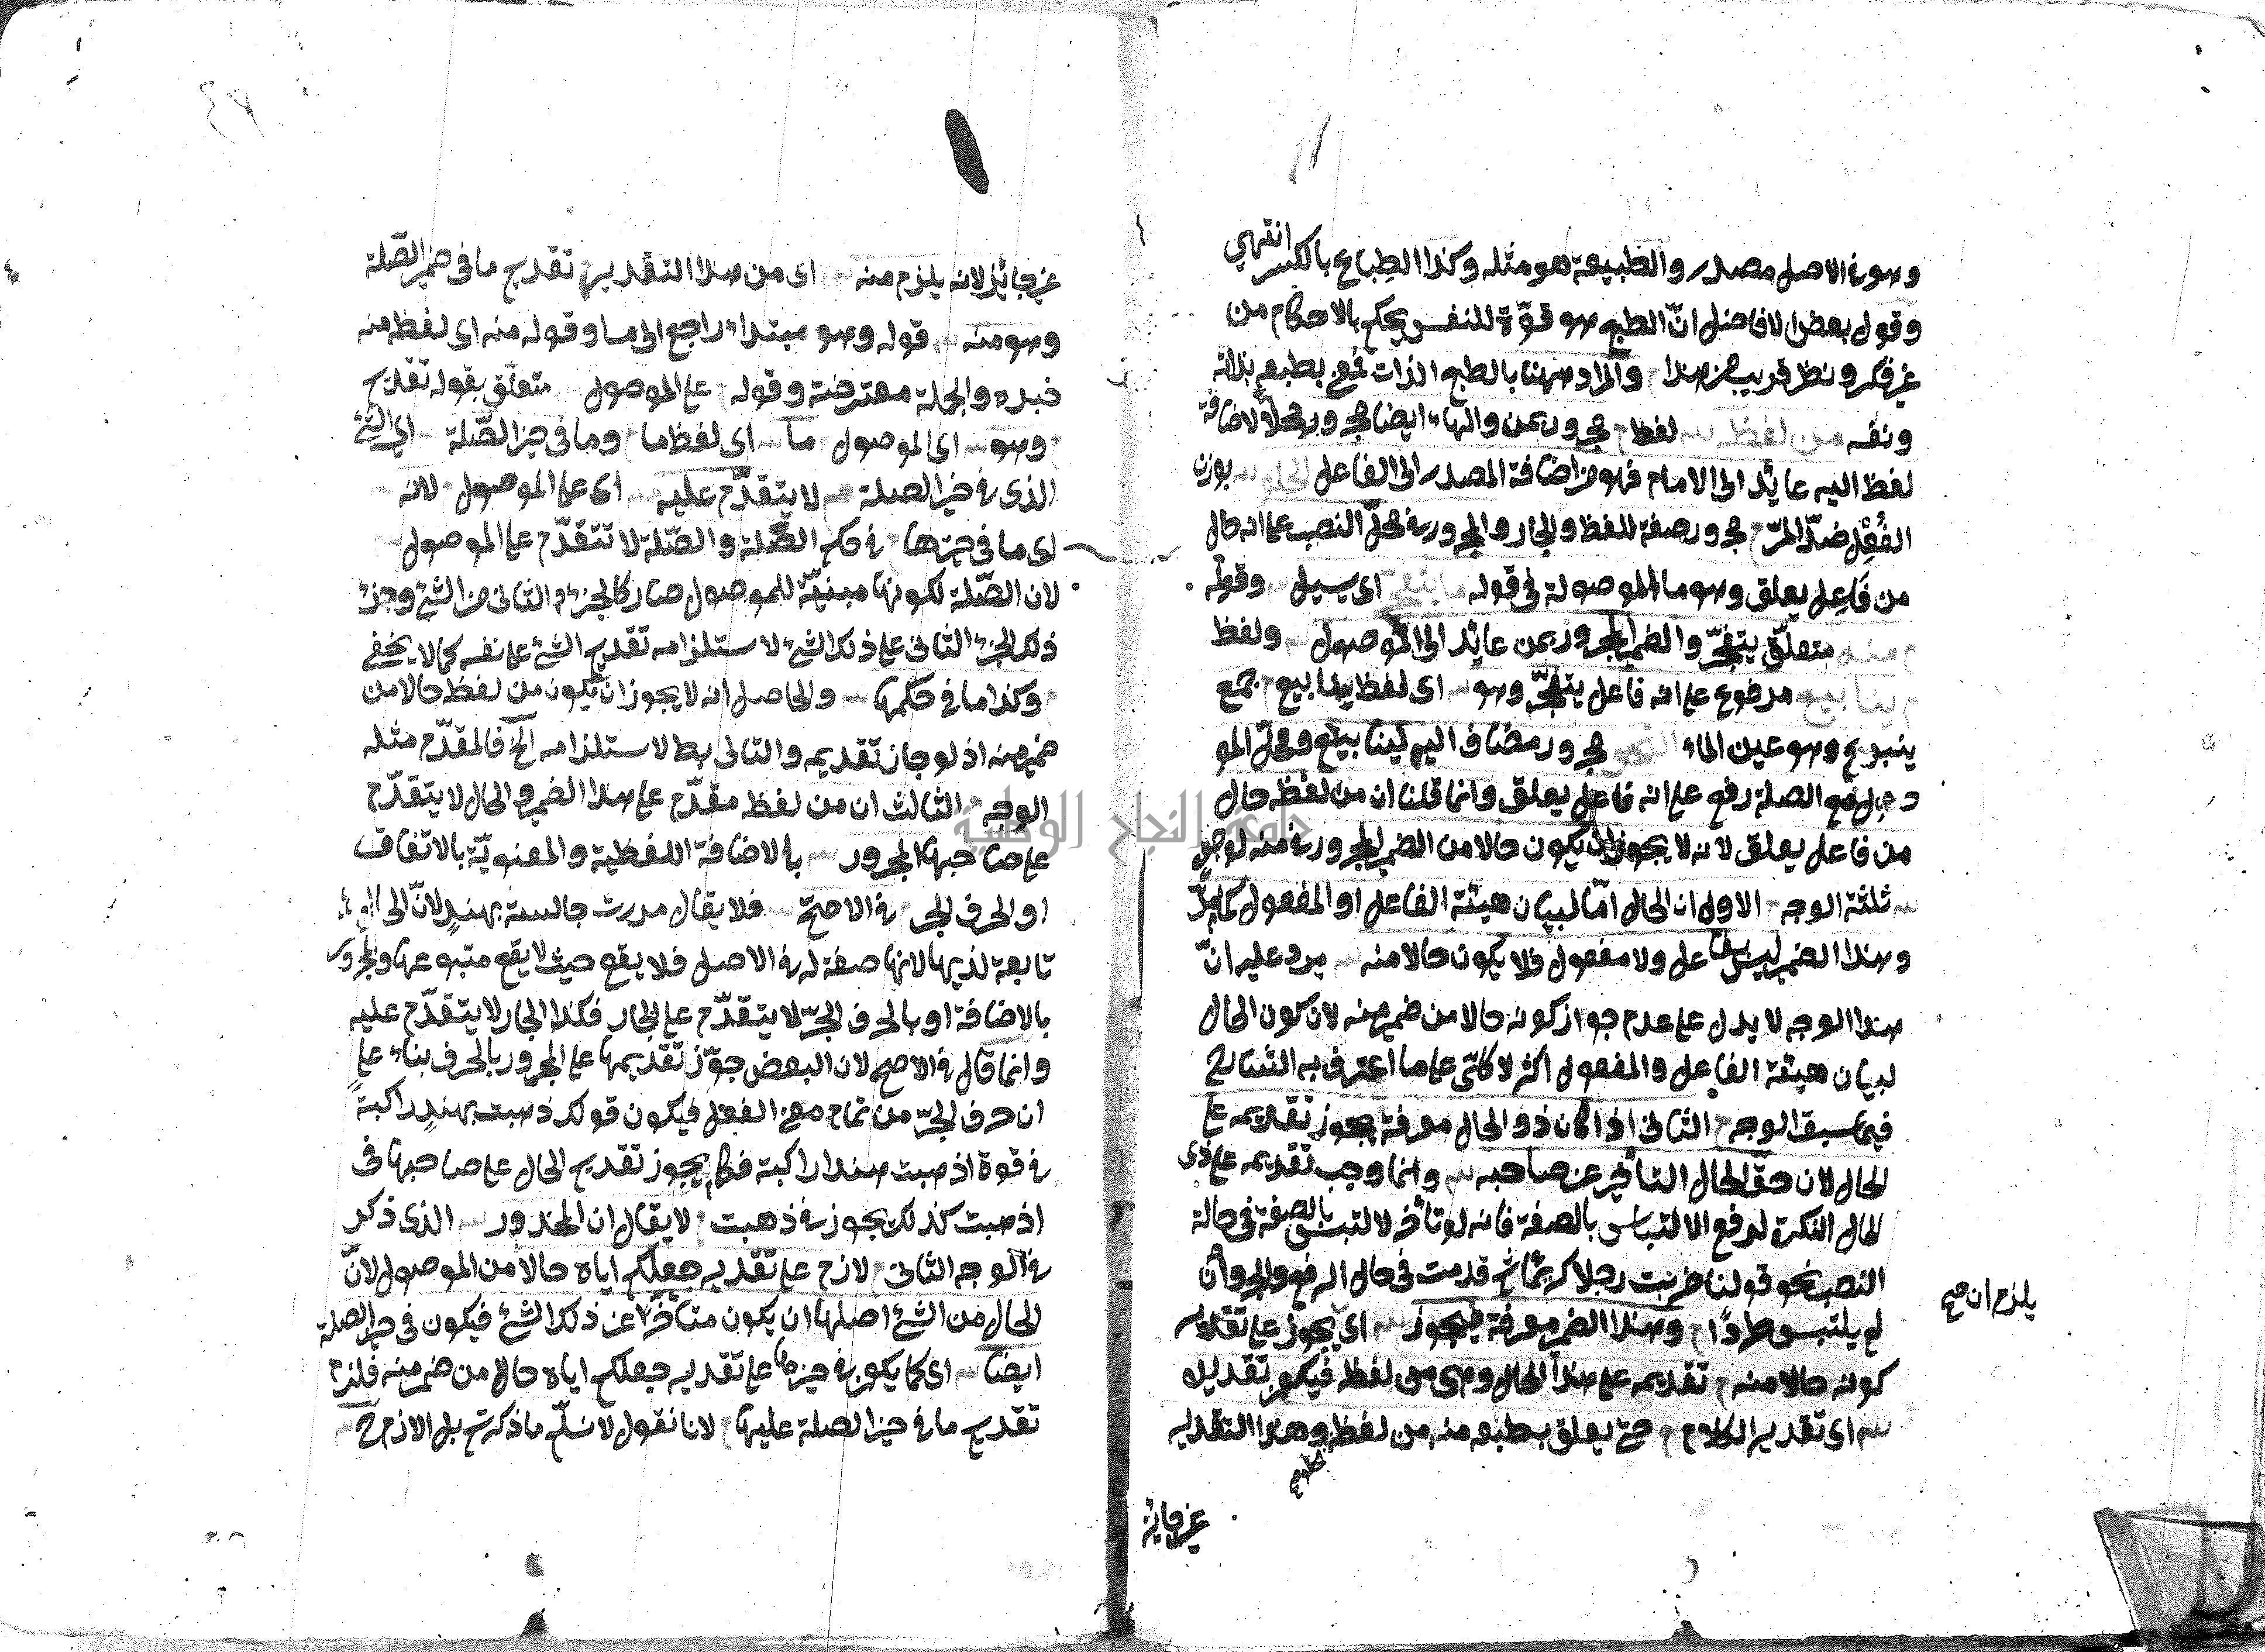 وهو في الاصل مصدر والطبيعة هو مثله وكذا الطباع بالكسر انتهى
وقول بعض الافاضل انّ الطبع هو قوّة للنفس يحكم بالاحكام من
غير فكر ونظر قريب من هذا والمراد ههنا بالطبع الذات فمعنى بطبعه بذاته
ونفسه من لفظه لفظ مجرور بمن والهاء ايضا مجرور محلّا لاضافة
لفظ اليه عائد الى الامام فهو من اضافة المصدر الى الفاعل الحلو بوزن
الفُعْل ضدّ المرّ مجرور صفة للفظ والجار والمجرور في محلّ النصب على انه حال
من فاعل يعلق وهو ما الموصولة في قوله ما يتفجر اى يسيل وقوله
منه متعلّق يتفجّر والضمير المجرور بمن عائد الى الموصول ولفظ
ينابيع مرفوع على انه فاعل يتفجّر وهو اى لفظ ينابيع جمع
ينبوع وهو عين الماء مجرور مضاف اليه لينابيع ومحلّ المو
صول مع الصلة رفع على انه فاعل يعلق وانما قلنا ان من لفظه حال
من فاعل يعلق لانه لا يجوز ان يكون حالا من الضمير المجرور في منه لوجوه
ثلثة الوجه الاول ان الحال امّا لبيان هيئة الفاعل او المفعول كما مرّ
وهذا الضمير ليس بفاعل ولا مفعول فلا يكون حالا منه يرد عليه انّ
هذا الوجه لا يدل على عدم جواز كونه حالا من ضمير منه لان كون الحال
لبيان هيئة الفاعل والمفعول اكثر لا كلّى على ما اعترف به الشارح
فيما سبق الوجه الثانى اذا كان ذو الحال معرفة يجوز تقديمه على
الحال لان حقّ الحال التأخير عن صاحبه وانما وجب تقديمه على ذى
الحال النكرة لدفع الالتباس بالصفة فانه لو تأخر لالتبس بالصفة فى حالة
النصب نحو قولنا ضربت رجلا كريما ثم قدمت فى حال الرفع والجر وان
لم يلتبس طردًا وهذا الضمير معرفة فيجوز اى يجوز على تقدير
كونه حالا منه تقديمه على هذا الحال وهى من لفظه فيكون تقديره
اى تقدير الكلام حتى يعلق بطبعه منه من لفظه وهذا التقدير
يلزم ان صح
غير جائز
غير جائز لانه يلزم منه اى من هذا التقدير تقديم ما فى حيز الصّلة
وهو منه قوله وهو مبتداء راجع الى ما وقوله منه اى لفظ منه
خبره والجملة معترضة وقوله على الموصول متعلّق بقوله تقديم
وهو اى الموصول ما اى لفظ ما وما فى حيز الصّلة اى الشئ
الذى فى حيز الصلة لا يتقدّم عليه اى على الموصول لانه
اى ما فى حيزها فى حكم الصّلة والصّلة لا تتقدّم على الموصول
لان الصّلة لكونها مبنيّة للموصول صار كالجزء الثانى من الشئ وجزء
ذلك الجزء الثانى على ذلك الشئ لاستلزامه تقديم الشئ على نفسه كما لا يخفى
وكذا ما فى حكمها والحاصل انه لا يجوز ان يكون من لفظ حالا من
ضمير منه اذ لو جاز تقديمه والتالى بط لاستلزامه الخ فالمقدّم مثله
الوجه الثالث ان من لفظه مقدّم على هذا الضمير والحال لا يتقدّم
على صاحبها المجرور بالاضافة اللفظية والمعنويّة بالاتفاق
او الحرف الجر فى الاصحّ فلا يقال مررت جالسة بهندٍ لانّ الحال
تابعة لذيها لانها صفة له فى الاصل فلا يقع حيث لا يقع متبوعها والمجرور
بالاضافة او بالحرف الجرّ لا يتقدّم على الجار فكذا الجار لا يتقدّم عليه
وانما قال فى الاصح لان البعض جوّز تقديمها على المجرور بالحرف بناء على
ان حرف الجرّ من تمام معنى الفعل فيكون قولك ذهبت بهندٍ راكبةً
فى قوة اذهبت هندا راكبة فكما يجوز تقديم الحال على صاحبها فى
اذهبت كذلك يجوز فى ذهبت لا يقال ان المحذور الذى ذكر
فى الوجه الثانى لازم على تقدير جعلكم اياه حالا من الموصول لانّ
الحال من الشئ اصلها ان يكون متأخّرا عن ذلك الشئ فيكون فى حيز الصلة
ايضا اى كما يكون فى حيزها على تقدير جعلكم اياه حالا من ضمير منه فلزم
تقديم ما فى حيز الصلة عليها لانا نقول لا نسلّم ما ذكرتم بل الازم ح
جامعة النجاح الوطنية